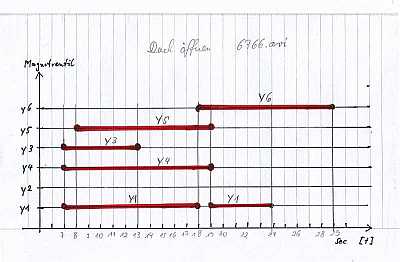 Dach öffnen 6766.avi
Magnetventil
y6 Y6
y5 Y5
y3 Y3
y4 Y4
y2
y1 Y1 Y1
7 8 9 10 11 12 13 14 15 16 17 18 19 20 22 24 26 28 29
sec [t]